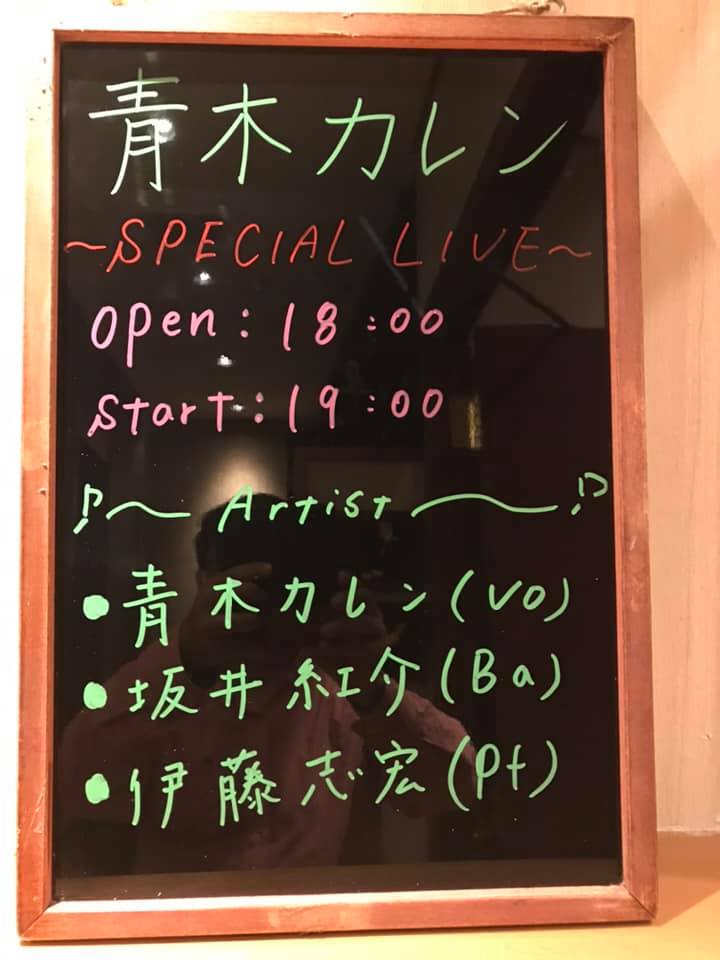 青木カレン
～SPECIAL LIVE～
open：18:00
start：19:00
♪～ Artist ～♪
●青木カレン(vo)
●坂井紅介(Ba)
●伊藤志宏(pf)